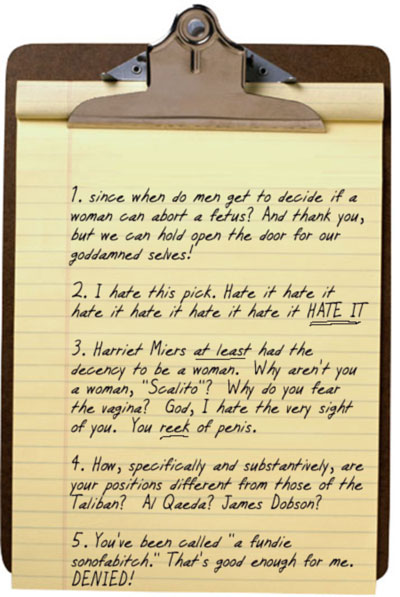 1. since when do men get to decide if a
woman can abort a fetus? And thank you,
but we can hold open the door for our
goddamned selves!
2. I hate this pick. Hate it hate it
hate it hate it hate it hate it HATE IT
3. Harriet Miers at least had the
decency to be a woman. Why aren't you
a woman, "Scalito"? Why do you fear
the vagina? God, I hate the very sight
of you. You reek of penis.
4. How, specifically and substantively, are
your positions different from those of the
Taliban? Al Qaeda? James Dobson?
5. You've been called "a fundie
sonofabitch." That's good enough for me.
DENIED!